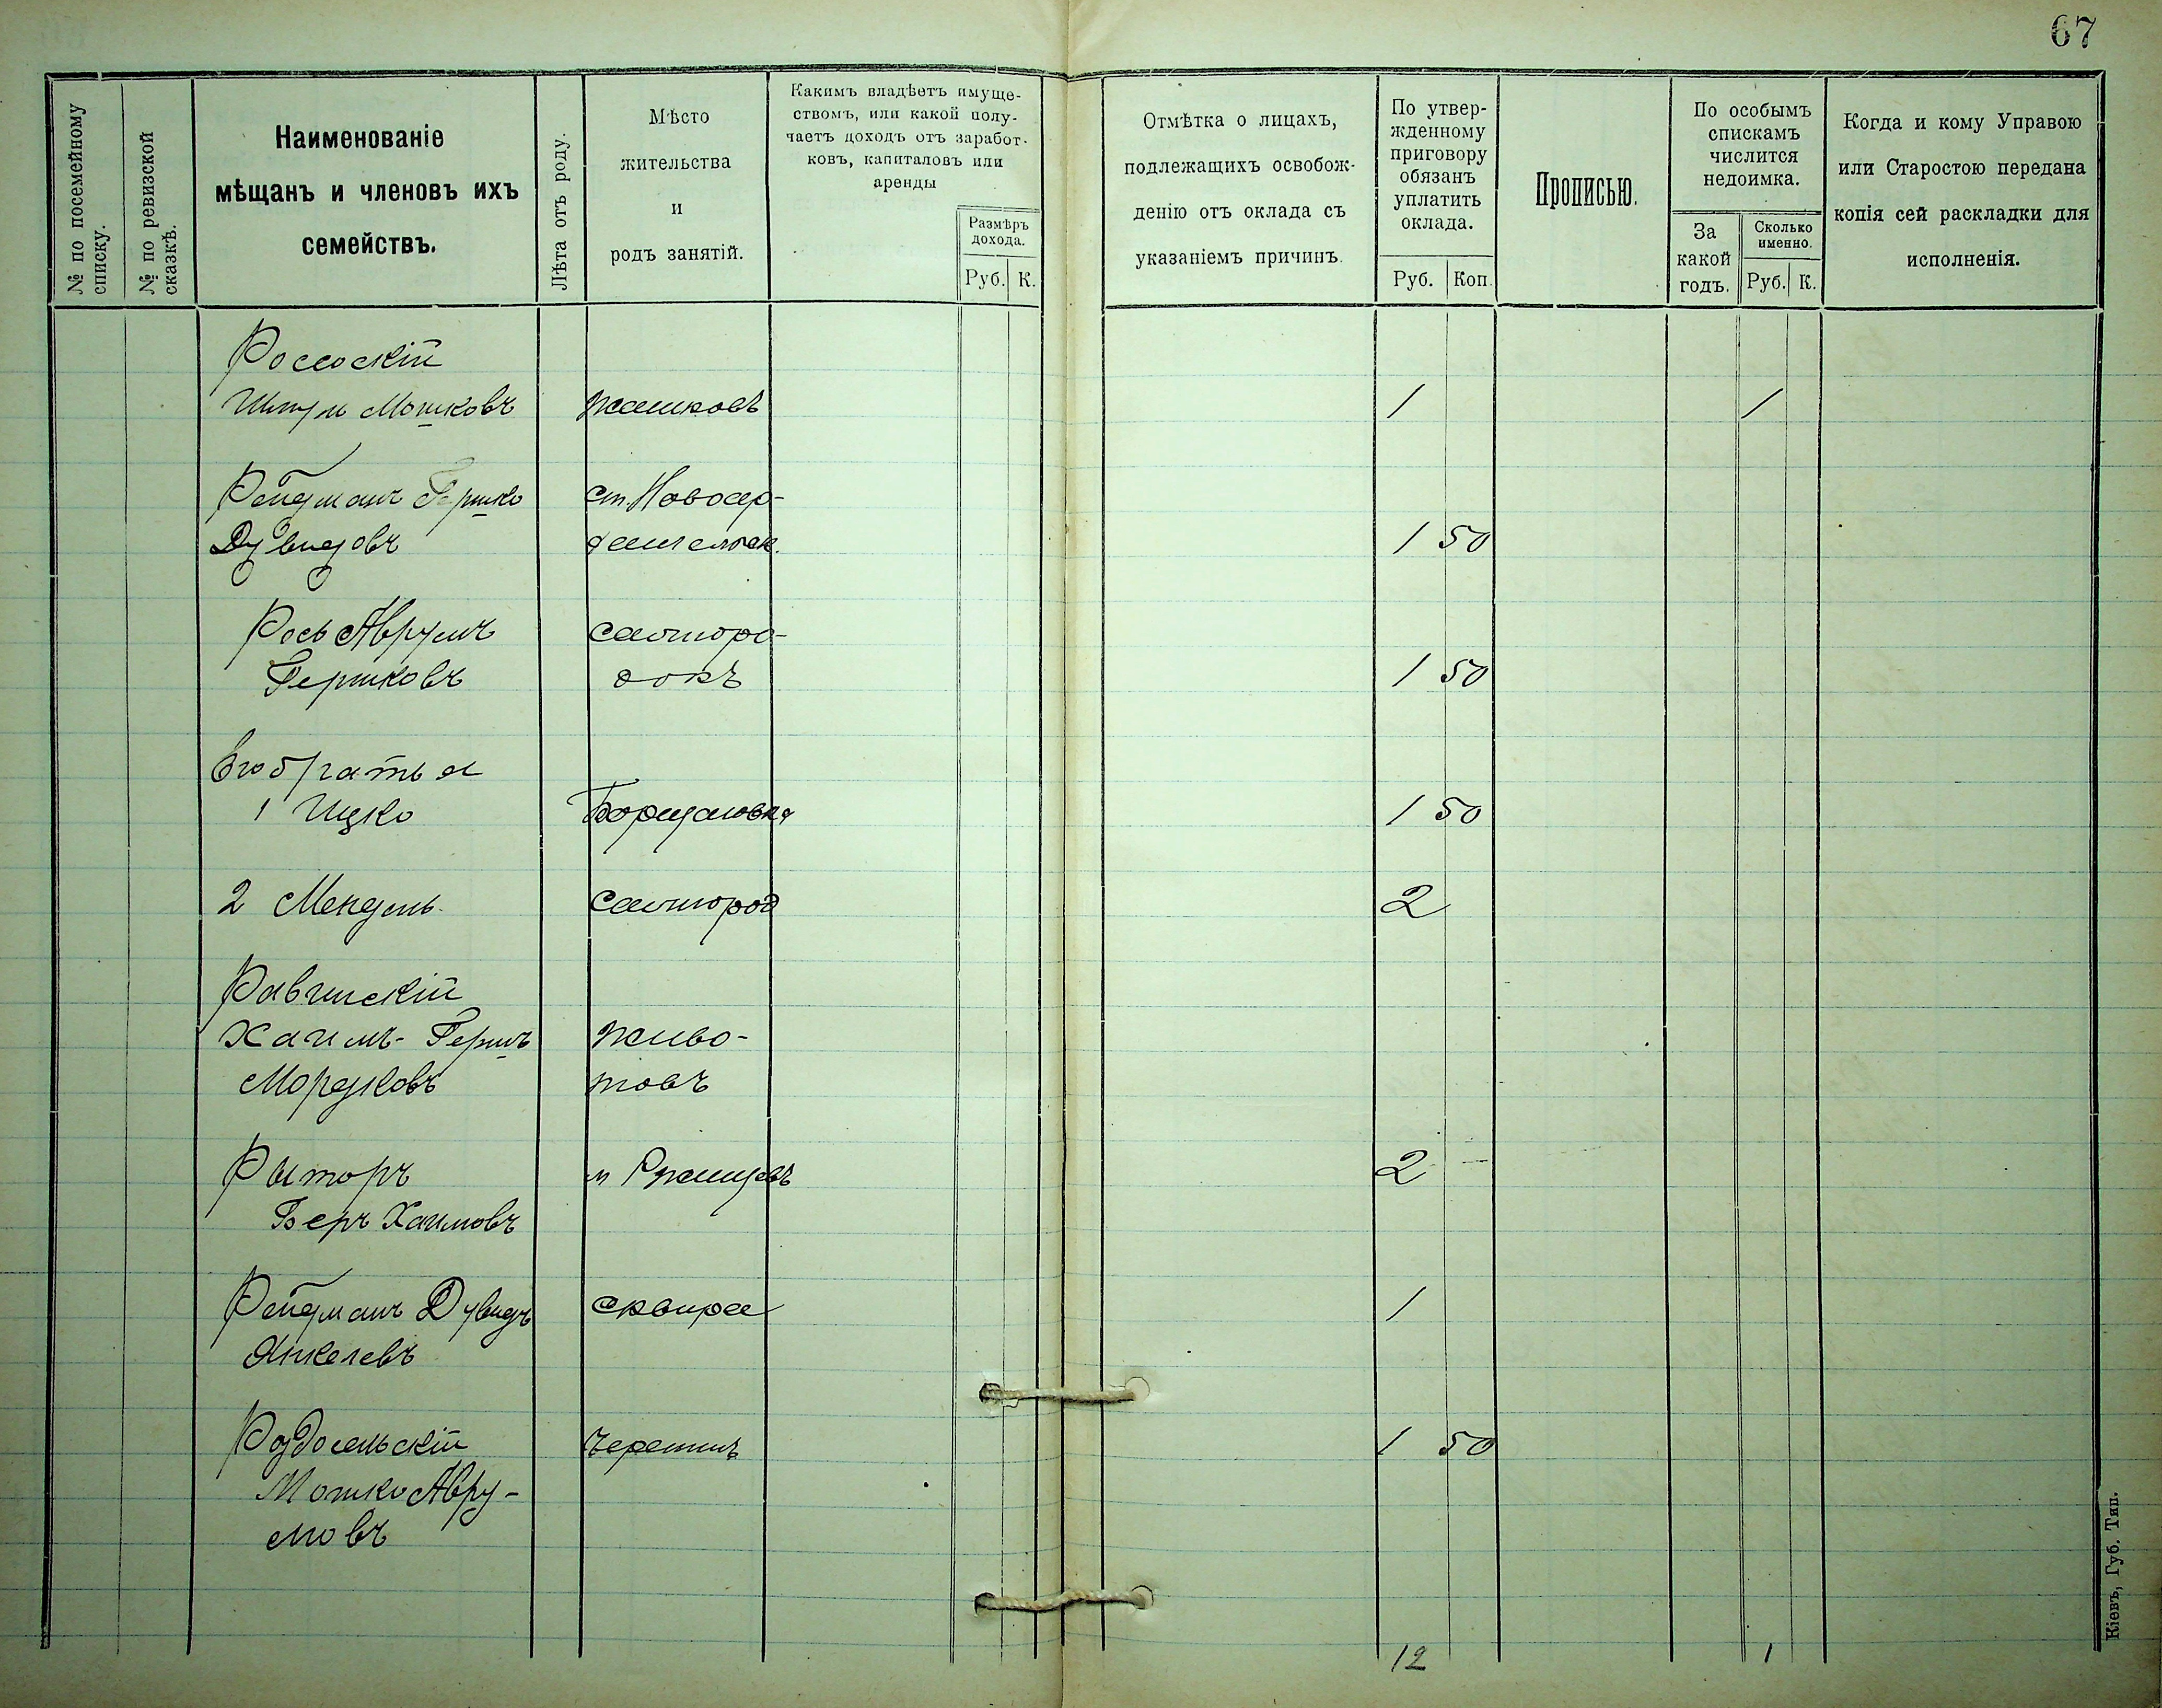 67
№ по посемейному
списку.
№ по ревизской
сказкѣ.
Наименованіе
мѣщанъ и членовъ ихъ
семействъ.
Лѣта отъ роду.
Мѣсто
жительства
и
родъ занятій.
Какимъ владѣетъ имуще-
ствомъ, или какой полу-
чаетъ доходъ отъ заработ-
ковъ, капиталовъ или
аренды
Размѣръ
дохода.
Руб. К.
Отмѣтка о лицахъ,
подлежащихъ освобож-
денію отъ оклада съ
указаніемъ причинъ.
По утвер-
жденному
приговору
обязанъ
уплатить
оклада.
Руб. Коп.
Прописью.
По особымъ
спискамъ
числится
недоимка.
За
какой
годъ.
Сколько
именно.
Руб. К.
Когда и кому Управою
или Старостою передана
копія сей раскладки для
исполненія.
Россоскій
Мошковъ Жашковъ 1 1
Рейдманъ Гершко ст. Новоар-
Дувидовъ 1 50
Рось Аврумъ Самгоро-
Гершковъ докъ 1 50
Его братья
1 Ицко Борщаговка 1 50
2 Мендель Самгород 2
Равинскій
Хаимъ-Гершъ Живо-
Мордковъ товъ
Рыторъ м Ружинцевъ 2
Беръ Хаимовъ
Рейдманъ Дувидъ Сквира 1
Янкелевъ
Роздосельскій Черемин 1 50
Мошко Авру-
мовъ
12 1
Кіевъ, Губ. Тип.